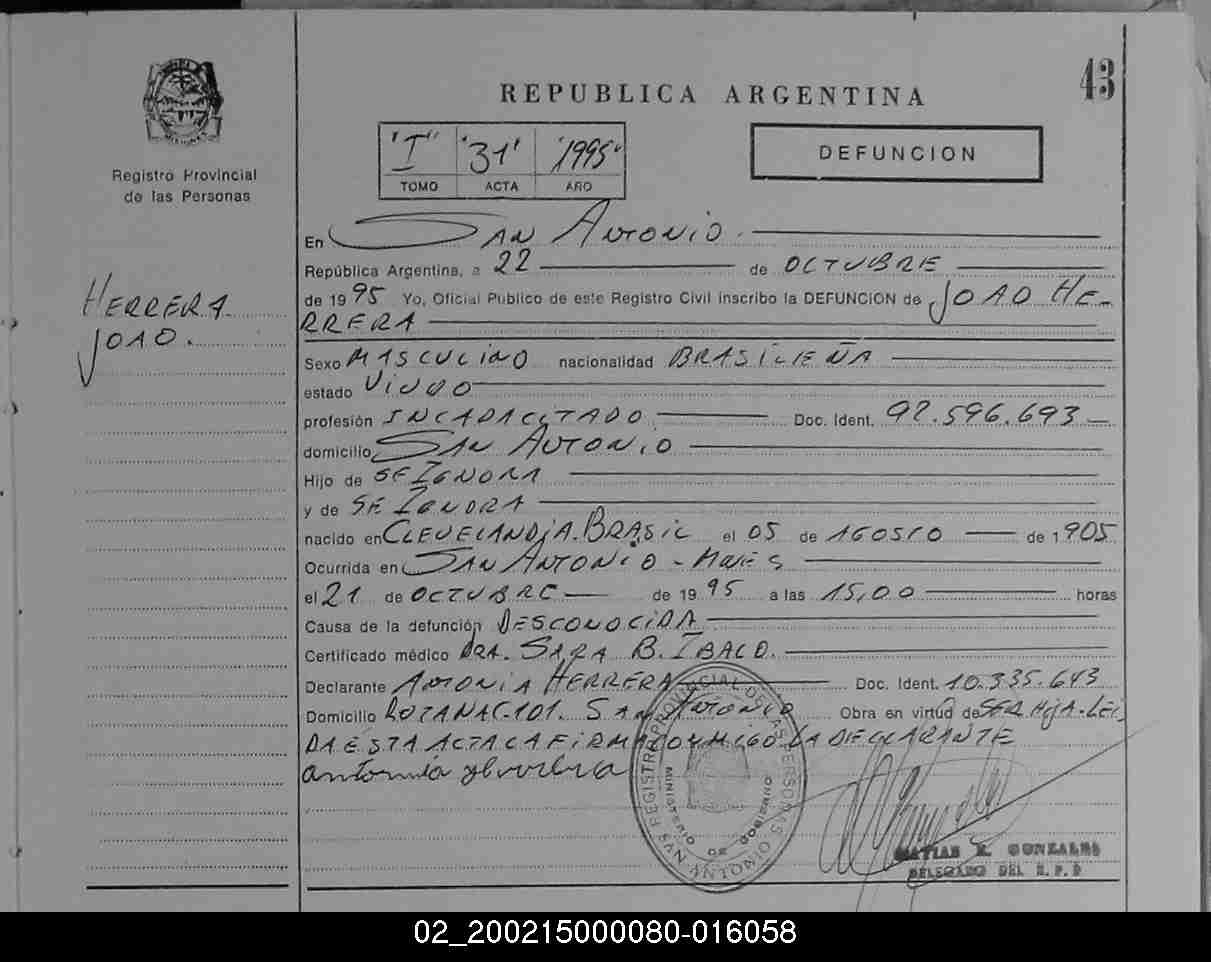 43
REPUBLICA ARGENTINA
"I" "31" "1995"
TOMO ACTA AÑO
DEFUNCION
Registro Provincial
de las Personas
HERRERA
JOAO.
En SAN ANTONIO.
República Argentina, a 22 de OCTUBRE
de 1995 Yo, Oficial Público de este Registro Civil inscribo la DEFUNCION de JOAO HE-
RRERA
Sexo MASCULINO nacionalidad BRASILEÑA
estado VIUDO
profesión INCAPACITADO Doc. Ident. 92.596.693
domicilio SAN ANTONIO
Hijo de SE IGNORA
y de SE IGNORA
nacido en CLEVELANDIA. BRASIL el 05 de AGOSTO de 1905
Ocurrida en SAN ANTONIO - MNES
el 21 de OCTUBRE de 1995 a las 15,00 horas
Causa de la defunción DESCONOCIDA
Certificado médico DRA. SARA B. IBALO.
Declarante ANTONIA HERRERA Doc. Ident. 10.335.643
Domicilio ROTANAC.101. SAN ANTONIO Obra en virtud de SER HIJA-LEI
DA ESTA ACTA LA FIRMA CONMIGO LA DECLARANTE
Antonia Herrera
REGISTRO PROVINCIAL DE LAS PERSONAS
MINISTERIO DE GOBIERNO
SAN ANTONIO
MATIAS R. GONZALES
DELEGADO DEL R.P.P
02_200215000080-016058